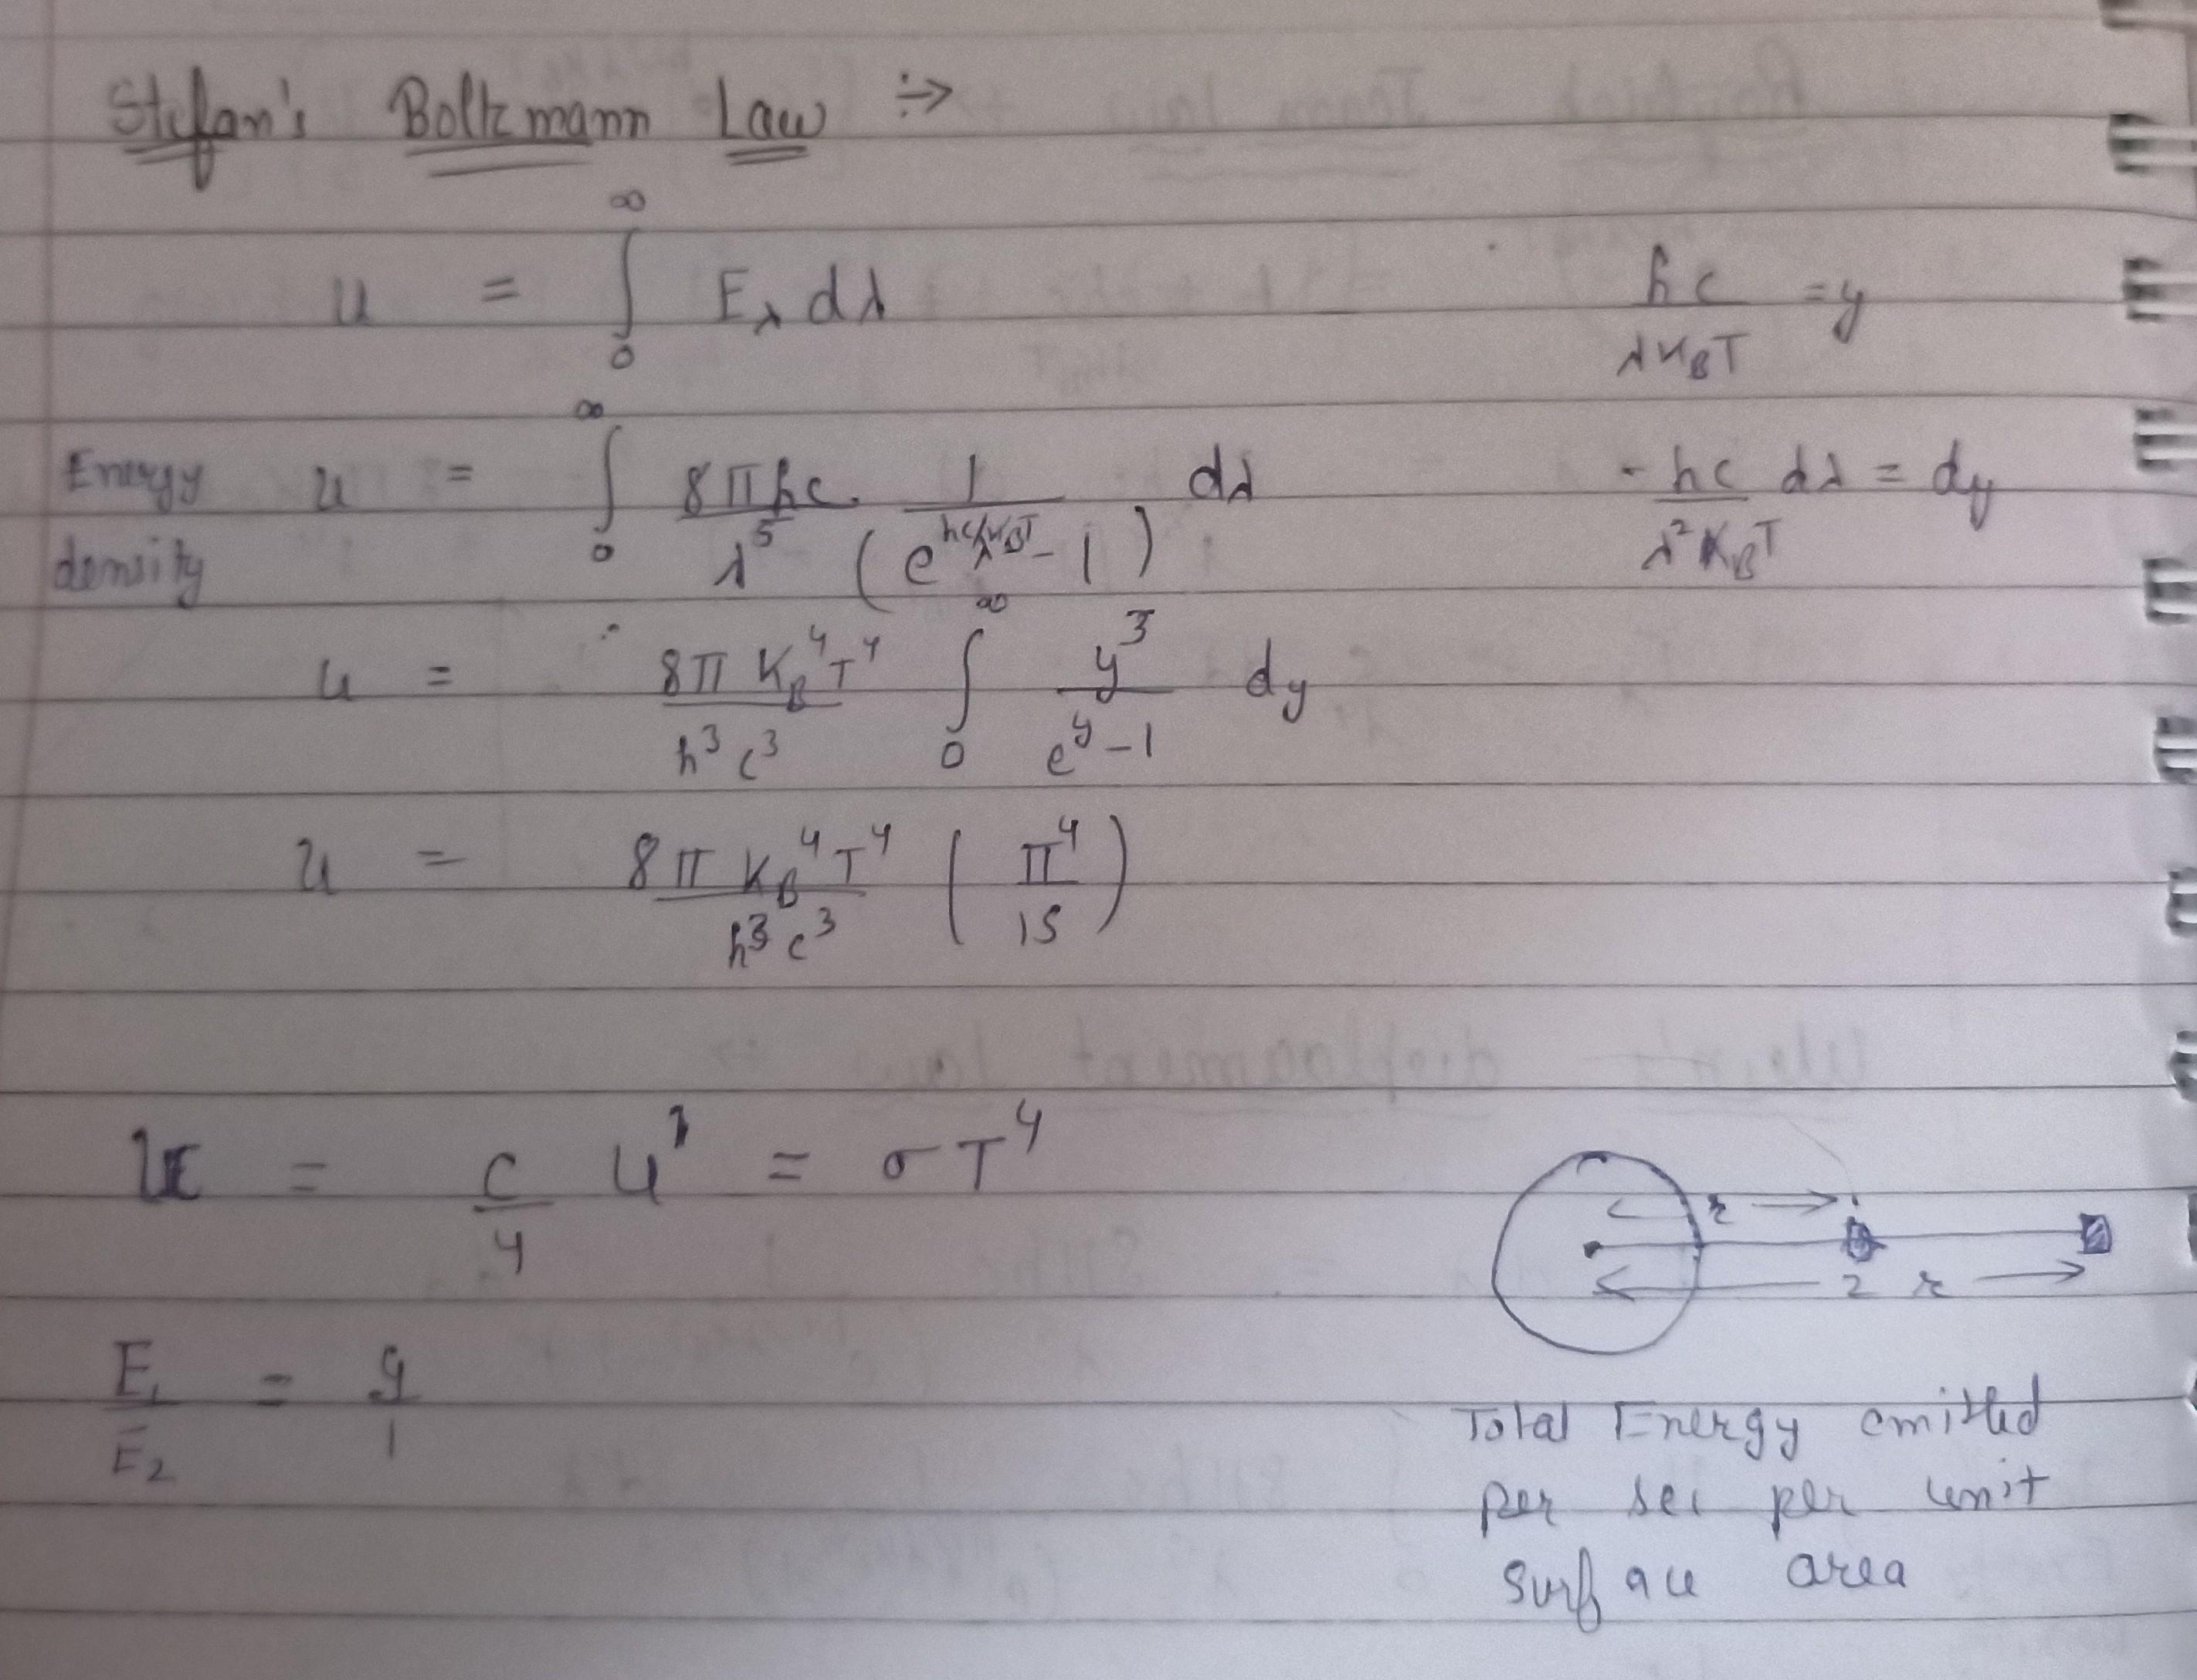 Stefan's Boltzmann Law ÷>
u = ∫₀^∞ E_λ dλ
hc/λK_BT = y
Energy density u = ∫₀^∞ 8πhc/λ⁵ · 1/(e^(hc/λK_BT) - 1) dλ
- hc/λ²K_BT dλ = dy
u = 8π K_B⁴T⁴/h³c³ ∫₀^∞ y³/(e^y - 1) dy
u = 8π K_B⁴T⁴/h³c³ (π⁴/15)
u = c/4 u' = σT⁴
r
2 r
E₁/E₂ = 9/1
Total Energy emitted
per sec per unit
surface area